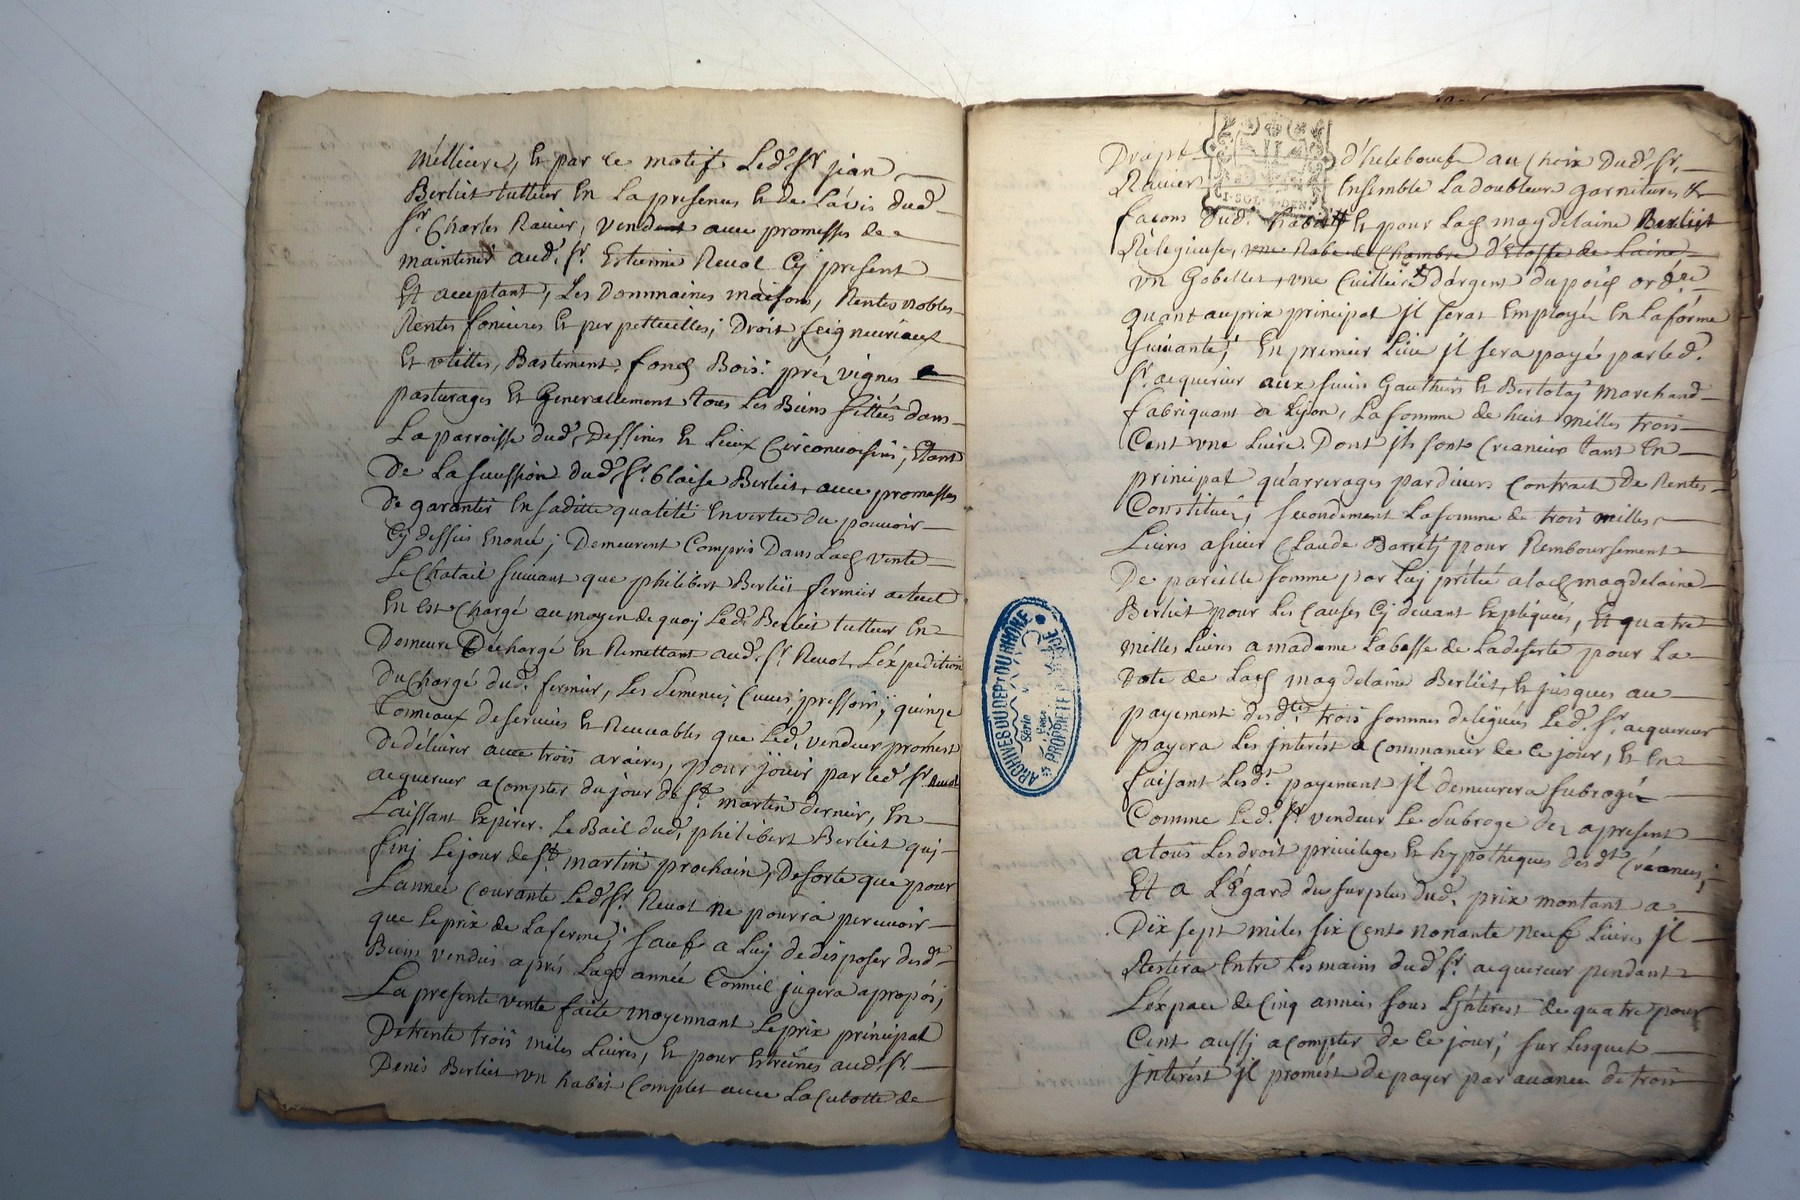 Meilleure, Et par ce motif Led.t Sr jean
Berliet tutteur En La presence Et de L'avis dud.
Sr. Charles Ravier, vend avec promesses de
maintenir aud. Sr. Estienne Revol Cy present
Et aceptant, Les Dommaines maisons, Rentes nobles
Rentes foncieres Et perpettuelles, Droit seigneuriaux
Et utilles, Bastiment, fonds Bois, prez vignes
pasturages Et Generallement tous Les Biens sittués dans
La parroisse dud. Dessines Et Lieux Circonvoisins, Etant
De La sucession dud. Sr. Blaise Berliet, avec promesses
De garantir En saditte qualité En vertu du pouvoir
Cy dessus Enoncé; Demeurent Compris Dans Lad. vente
Le Chatail suivant que philibert Berliet fermier actuel
En Est Chargé au moyen de quoy Led. Berliet tutteur En
Demeure Déchargé En Remettant aud. Sr. Revol L'expedition
Du Chargé dud. fermier, Les semences, Cuves, pressoir, quinze
Tonneaux de servines Et Recevables que Led. vendeur promest
De délivrer avec trois araires, pour jöuir par led. Sr. Revol
acquereur a Compter du jour de St. martin dernier, En
Laissant Expirer Le Bail dud. philibert Berliet qui
finj Le jour de St. martin prochain, De sorte que pour
L'année Courante Led. Sr. Revol ne pourra percevoir
que Le prix de La ferme, sauf a Luy de disposer desd.
Biens vendus aprés Lad. année Comme il jugera a propos;
La presente vente faite moyennant Le prix principal
De trente trois milles Livres, Et pour Estreines aud. Sr.
Denis Berliet un habit Complet avec La Culotte de
Drapt d'hulebouf au Choix dud. Sr.
Ravier Ensemble La doubleure garnitures &
façons dud. habit Et pour Lad. magdelaine Berliet
Relegieuse, une Robe de Chambre d'Etoffe de Laine,
un Gobellet, une Cuilliere d'argent du poid ord.re
Quant au prix principal jl serat Employé En La forme
suivante; En premier Lieu jl sera payé par led.
Sr. acquereur aux sieurs Gauthier Et Bertolaj Marchand
fabriquant de Lyon, La somme de huit milles trois
Cent une Livre Dont jls sont Creancier tant En
principal qu'arrerages par divers Contract De Rentes
Constitués; secondement La somme de trois milles
Livres a sieur Claude Barret pour Remboursement
De pareille somme par Luj prétée a lad. magdelaine
Berliet pour Les Causes Cy devant Expliquées, Et quatre
milles Livres a madame L'abesse de La deserte pour La
Dote de Lad. magdelaine Berliet, Et jusques au
payement desd.tes trois sommes deleguées Led. Sr. acquereur
payera Les jnterest a Commancer de ce jour, Et En
faisant Lesd.t payement jl demeurera subrogé
Comme Led. Sr. vendeur Le subroge dez apresent
a tous Les droit privileges Et hypotheques desd.t Créances;
Et a L'Egard du surplus dud. prix montant a
Dix sept miles six Cents nonante neuf Livres jl
Restera Entre Les mains dud. Sr. acquereur pendant
L'éxpace de Cinq années sous L'jnterest de quatre pour
Cent aussj a Compter de Ce jour, sur Lesquel
jnterést jl promest De payer par avance de trois
ARCHIVES DU DEPT DU RHÔNE
Série
PROPRIÉTÉ PUBLIQUE